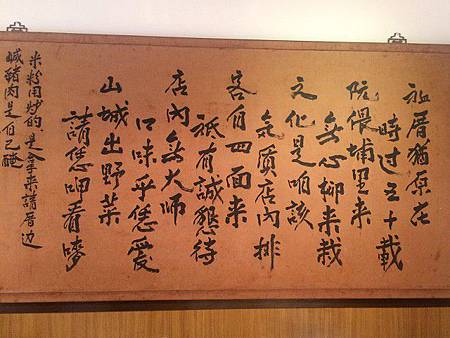 祖厝猶原在
時过五十載
阮偎埔里来
無心柳来栽
文化是咱該
気质店内排
客自四面来
祗有誠懇待
店內無大師
口味乎恁愛
山城出野菜
請恁呷看嘜
米粉用炒的.是拿来請厝边
鹹豬肉是自己醃